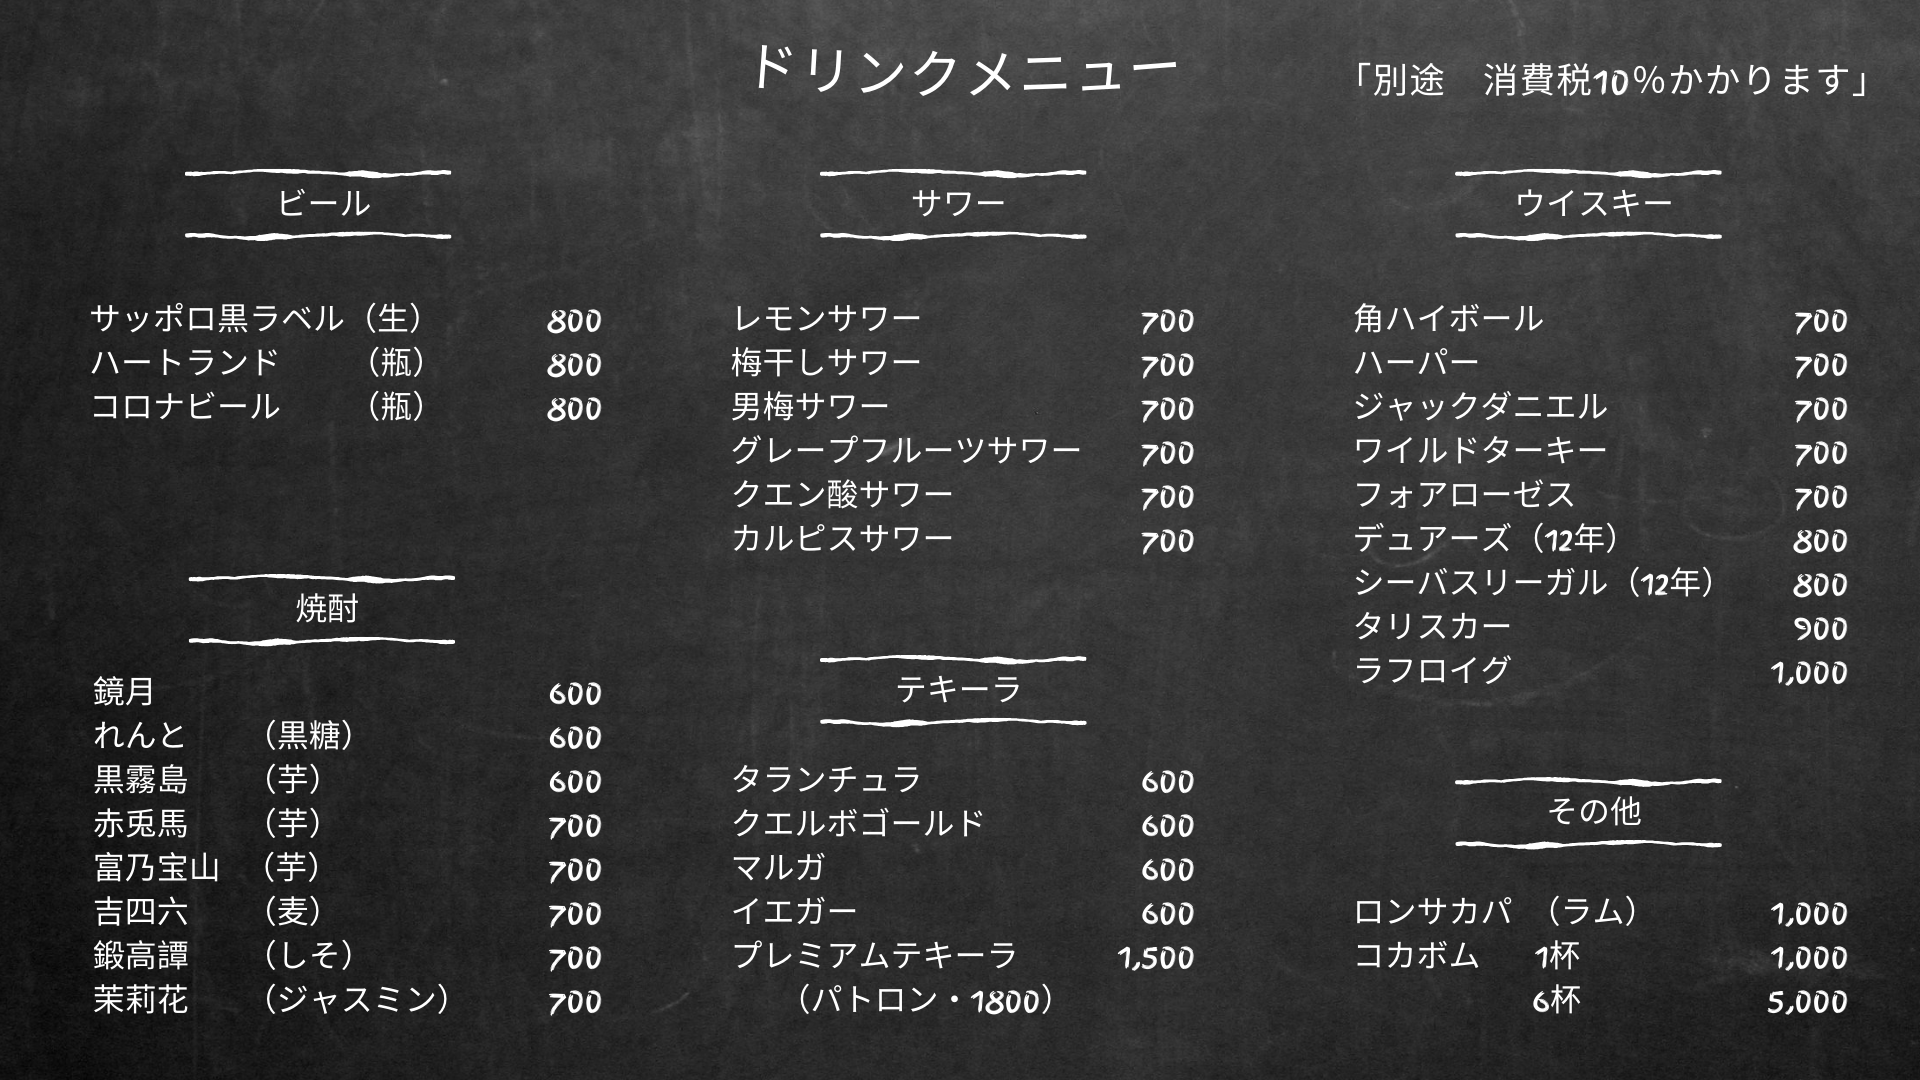 ドリンクメニュー
「別途　消費税10%かかります」
ビール
サッポロ黒ラベル（生） 800
ハートランド （瓶） 800
コロナビール （瓶） 800
焼酎
鏡月 600
れんと （黒糖） 600
黒霧島 （芋） 600
赤兎馬 （芋） 700
富乃宝山 （芋） 700
吉四六 （麦） 700
鍛高譚 （しそ） 700
茉莉花 （ジャスミン） 700
サワー
レモンサワー 700
梅干しサワー 700
男梅サワー 700
グレープフルーツサワー 700
クエン酸サワー 700
カルピスサワー 700
テキーラ
タランチュラ 600
クエルボゴールド 600
マルガ 600
イエガー 600
プレミアムテキーラ 1,500
（パトロン・1800）
ウイスキー
角ハイボール 700
ハーパー 700
ジャックダニエル 700
ワイルドターキー 700
フォアローゼス 700
デュアーズ（12年） 800
シーバスリーガル（12年） 800
タリスカー 900
ラフロイグ 1,000
その他
ロンサカパ （ラム） 1,000
コカボム 1杯 1,000
6杯 5,000